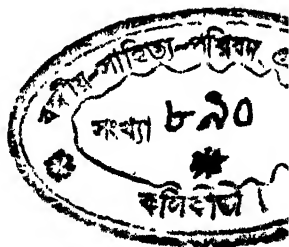 বঙ্গীয় সাহিত্য পরিষদ
সংখ্যা ৮৯০
কলিকাতা